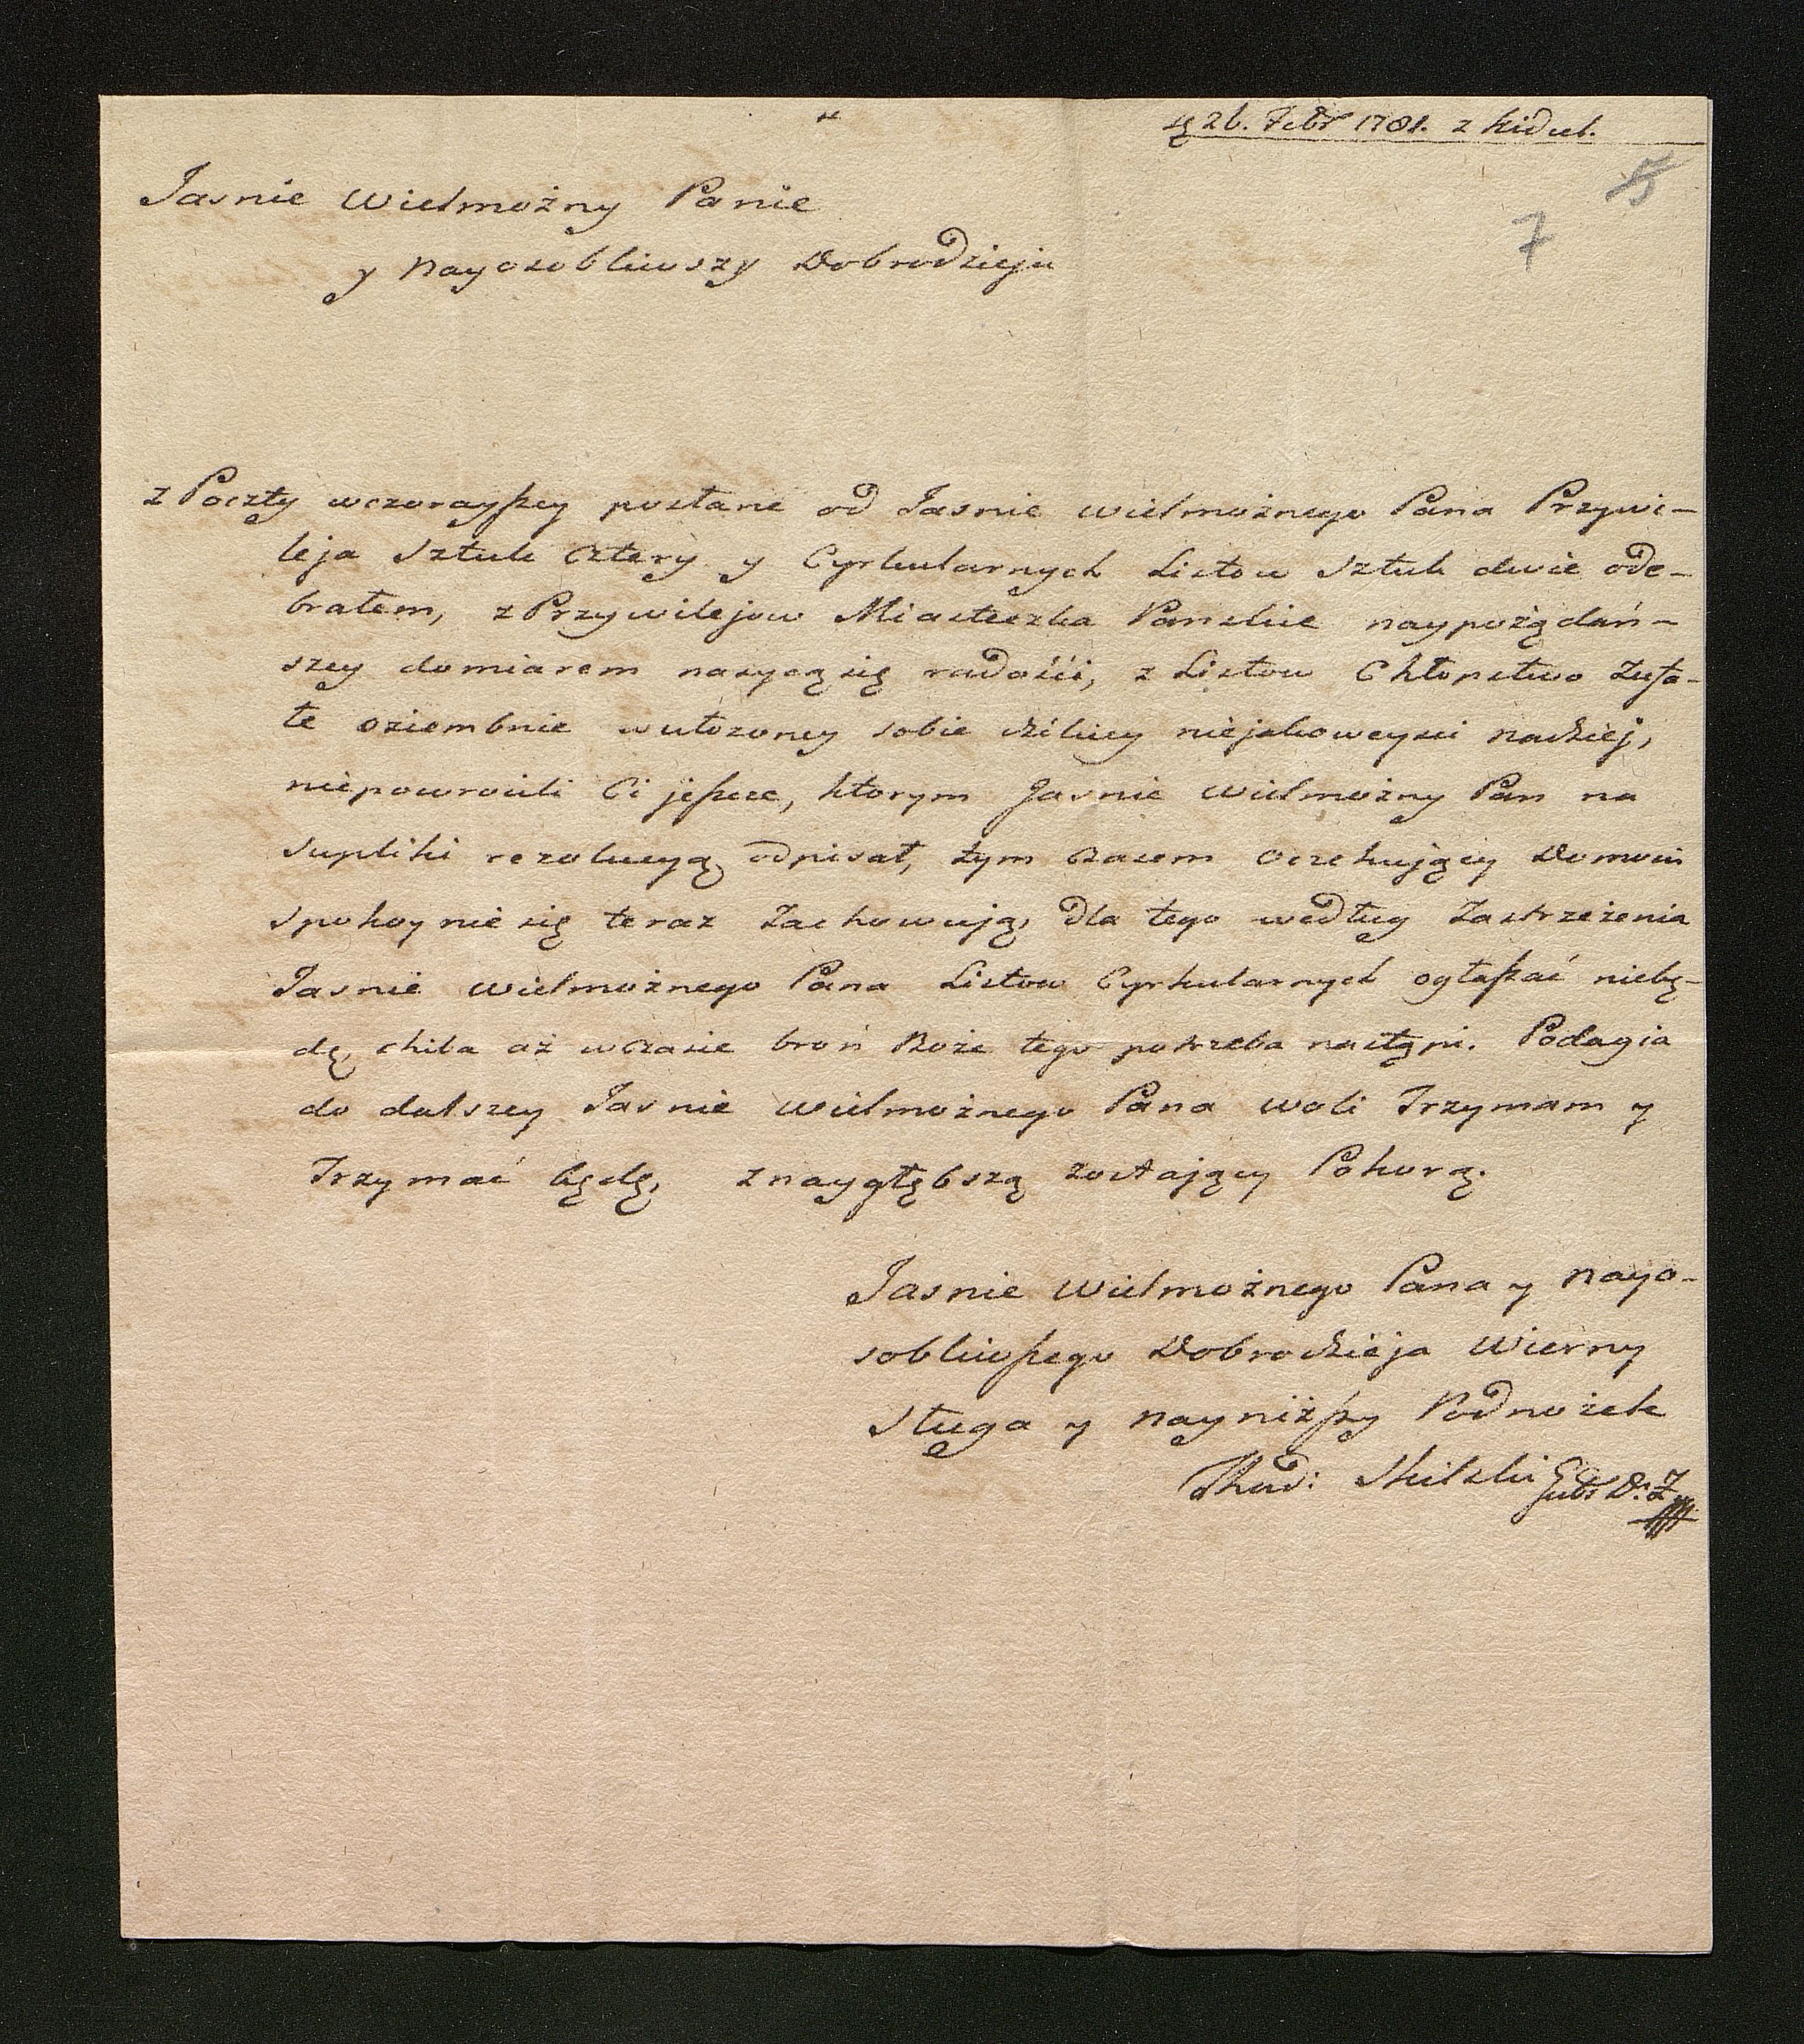 26. Febr 1781. z Kidul.
5
7
Jasnie Wielmożny Panie
y Nayosobliwszy Dobrodzieju
z Poczty wczorayszey posłane od Jasnie wielmożnego Pana Przywi-
leja Sztuk cztery y Cyrkularnych Listow Sztuk dwie ode-
brałem, z Przywilejow Miasteczka Panskie naypożądań-
szey domiarem nasycą się radości, z Listow Chłopstwo Zufa-
łe oziembnie wułozoney sobie niejakoweysci nadziej,
niepowrócili Ci jeszcze, ktorym Jasnie Wielmożny Pan na
supliki rezolucyą odpisał, tym czasem oczekujący Domow
spokoynie się teraz Zachowują, dla tego według Zastrzeżenia
Jasnie Wielmożnego Pana Listow Cyrkularnych ogłaszać niebę-
dę, chiba aż wczasie broń Boże tego potrzeba nastąpi. Podagia
do dalszey Jasnie Wielmożnego Pana woli Trzymam y
Trzymać będę, z naygłębszą zostający Pokorą.
Jasnie Wielmożnego Pana y Nayo-
sobliwszego Dobrodzieja Wierny
Sługa y nayniższy Podnożek
Thad: